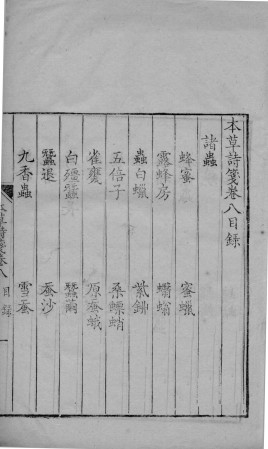 本草詩箋卷八目錄
諸蟲
蜂蜜 蜜蠟
露蜂房 蠮螉
蟲白蠟 紫鉚
五倍子 桑螵蛸
雀甕 原蚕蛾
白殭蠶 蠶繭
蠶退 蚕沙
九香蟲 雪蚕
本草詩箋卷八 目錄 一